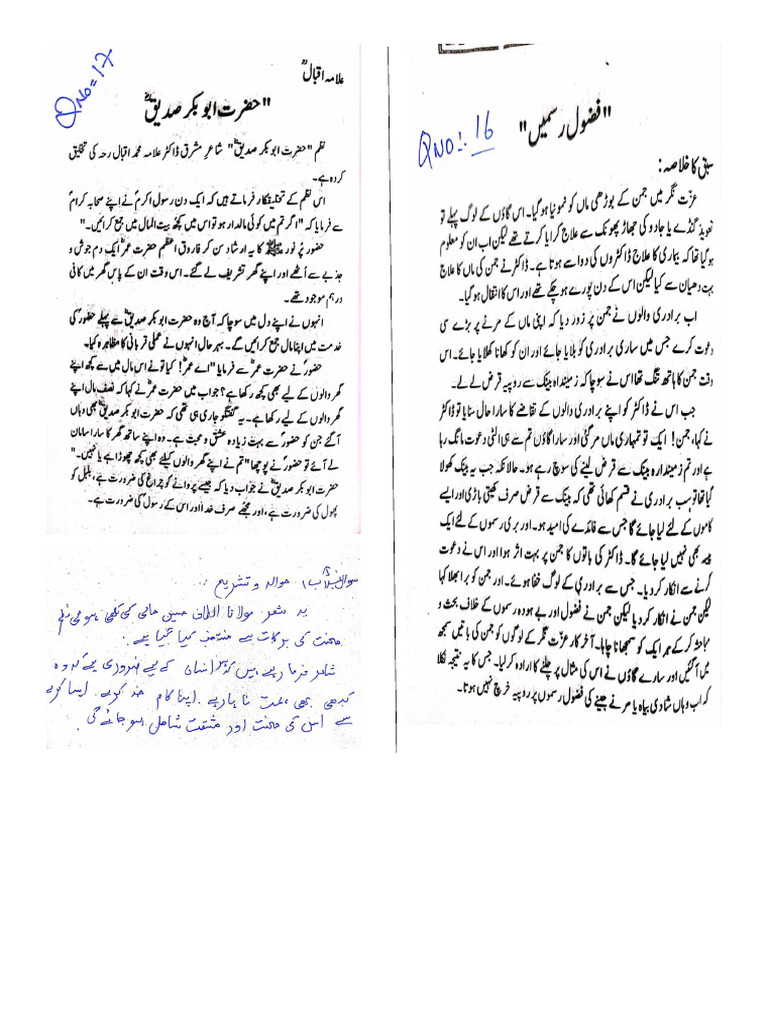 Q No: 16
"فضول رسمیں"
سبق کا خلاصہ:
عزّت نگر میں جمن کے بوڑھی ماں کو نمونیا ہو گیا۔ اس گاؤں کے لوگ پہلے تو
تعویذ گنڈے یا جادو کی جھاڑ پھونک سے علاج کرایا کرتے تھے لیکن اب ان کو معلوم
ہو گیا تھا کہ بیماری کا علاج ڈاکٹروں کی دوا سے ہوتا ہے۔ ڈاکٹر نے جمن کی ماں کا علاج
بہت دھیان سے کیا لیکن اس کے دن پورے ہو چکے تھے اور اس کا انتقال ہو گیا۔
اب برادری والوں نے جمن پر زور دیا کہ اپنی ماں کے مرنے پر بڑے سی
دعوت کرے جس میں ساری برادری کو بلایا جائے اور ان کو کھانا کھلایا جائے۔ اس
وقت جمن کا ہاتھ تنگ تھا اس نے سوچا کہ زمیندارہ بینک سے روپیہ قرض لے لے۔
جب اس نے ڈاکٹر کو اپنے برادری والوں کے تقاضے کا سارا حال سنایا تو ڈاکٹر
نے کہا، جمن! ایک تو تمہاری ماں مر گئی اور سارا گاؤں تم سے ہی الٹی دعوت مانگ رہا
ہے اور تم زمیندارہ بینک سے قرض لینے کی سوچ رہے ہو۔ حالانکہ جب یہ بینک کھولا
گیا تھا تو سب برادری نے قسم کھائی تھی کہ بینک سے قرض صرف کھیتی باڑی اور ایسے
کاموں کے لئے لیا جائے گا جس سے فائدے کی امید ہو۔ اور بری رسموں کے لئے ایک
پیسہ بھی نہیں لیا جائے گا۔ ڈاکٹر کی باتوں کا جمن پر بہت اثر ہوا اور اس نے دعوت
کرنے سے انکار کر دیا۔ جس سے برادری کے لوگ خفا ہوئے۔ اور جمن کو برا بھلا کہا
لیکن جمن نے انکار کر دیا لیکن جمن نے فضول اور بے ہودہ رسموں کے خلاف بحث و
مباحثہ کر کے ہر ایک کو سمجھانا چاہا۔ آخر کار عزّت نگر کے لوگوں کو جمن کی باتیں سمجھ
میں آ گئیں اور سارے گاؤں نے اس کی مثال پر چلنے کا ارادہ کر لیا۔ جس کا یہ نتیجہ نکلا
کہ اب وہاں شادی بیاہ یا مرنے جینے کی فضول رسموں پر روپیہ خرچ نہیں ہوتا۔
Q No = 17
علامہ اقبالؒ
"حضرت ابوبکر صدیقؓ"
نظم "حضرت ابو بکر صدیقؓ" شاعرِ مشرق ڈاکٹر علامہ محمد اقبال رحہ کی تخلیق
کردہ ہے۔
اس نظم کے تخلیقکار فرماتے ہیں کہ ایک دن رسول اکرمؐ نے اپنے صحابہ کرامؓ
سے فرمایا کہ "اگر تم میں کوئی مالدار ہو تو اس میں کچھ بیت المال میں جمع کرائیں۔"
حضور پُر نور ﷺ کا یہ ارشاد سن کر فاروق اعظم حضرت عمرؓ ایک دم جوش و
جذبے سے اُٹھے اور اپنے گھر تشریف لے گئے۔ اس وقت ان کے پاس گھر میں کافی
درہم موجود تھے۔
انہوں نے اپنے دل میں سوچا کہ آج وہ حضرت ابو بکر صدیقؓ سے پہلے حضورؐ کی
خدمت میں اپنا مال جمع کرائیں گے۔ بہر حال انہوں نے عملی قربانی کا مظاہرہ کیا۔
حضورؐ نے حضرت عمرؓ سے فرمایا "اے عمرؓ! کیا تو نے اس مال میں سے کچھ اپنے
گھر والوں کے لیے بھی کچھ رکھا ہے؟ جواب میں حضرت عمرؓ نے کہا کہ نصف مال اپنے
گھر والوں کے لیے رکھا ہے۔ یہ گفتگو جاری ہی تھی کہ حضرت ابو بکر صدیقؓ بھی وہاں
آ گئے جن کو حضورؐ سے بہت زیادہ عشق و محبت ہے۔ وہ اپنے ساتھ گھر کا سارا سامان
لے آئے تو حضورؐ نے پوچھا "تم نے اپنے گھر والوں کیلئے بھی کچھ چھوڑا ہے یا نہیں۔"
حضرت ابو بکر صدیقؓ نے جواب دیا کہ جیسے پروانے کو چراغ کی ضرورت ہے، بلبل کو
پھول کی ضرورت ہے، اور مجھے صرف خدا اور اس کے رسولؐ کی ضرورت ہے۔
حوالہ و تشریح :
یہ شعر مولانا الطاف حسین حالی کی لکھی ہوئی نظم
محنت کی برکات سے منتخب کیا گیا ہے۔
شاعر فرما رہے ہیں کہ ہر انسان کے لیے ضروری ہے کہ وہ
کبھی بھی ہمت نا ہارے۔ اپنا کام خود کرے۔ ایسا کرنے
سے اس کی محنت اور مشقت شامل ہو جائے گی